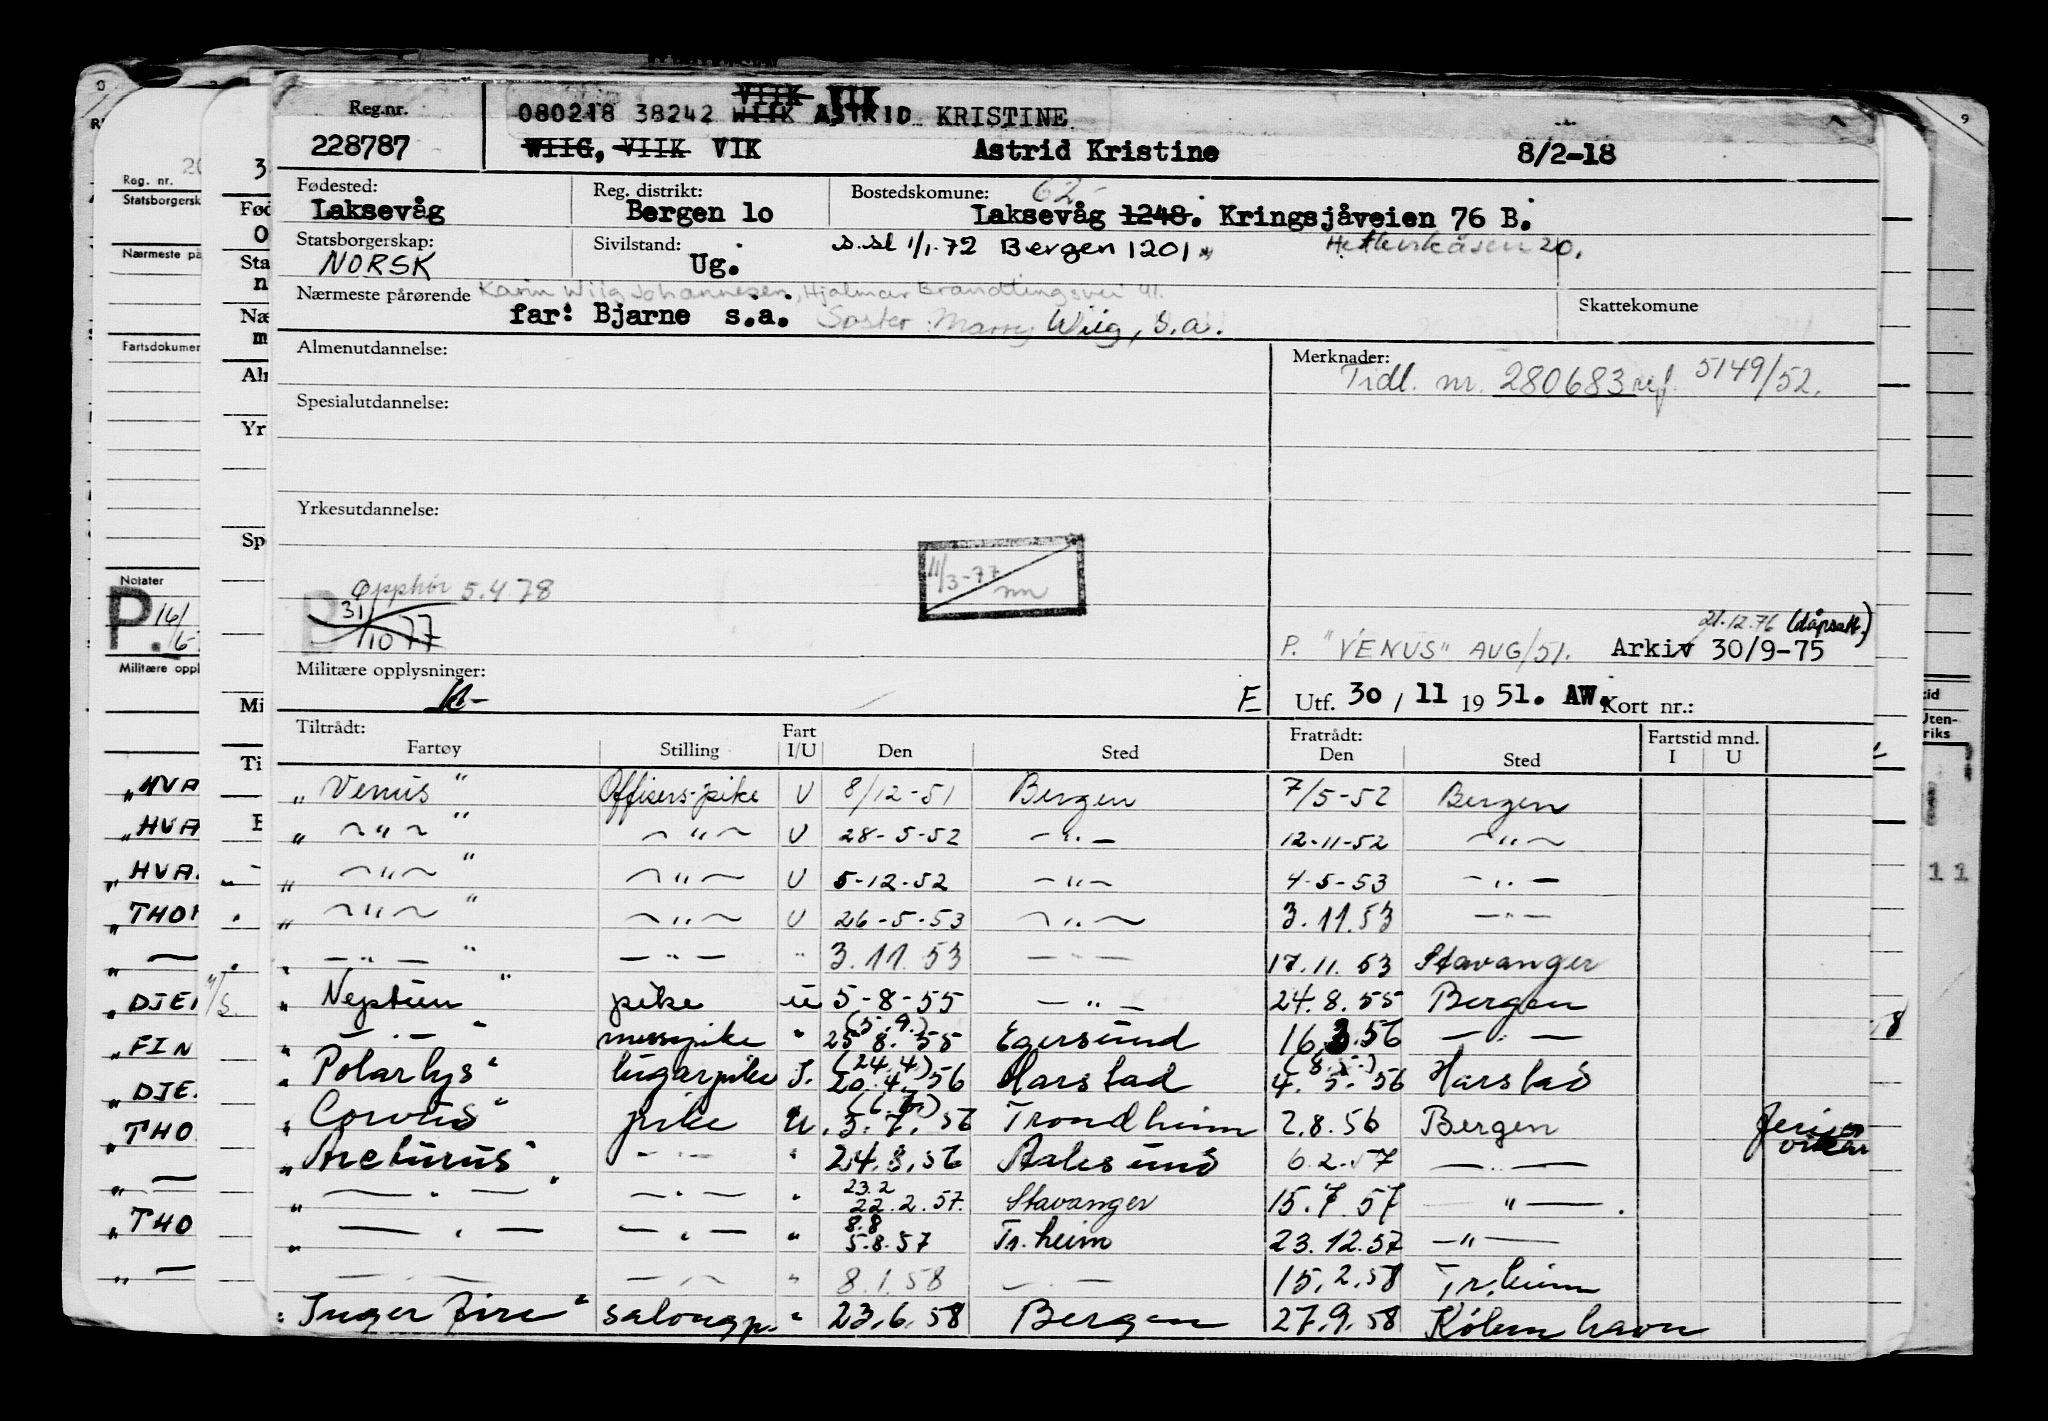 VIIK VIK
Reg.nr. 080218 38242 WIIK ASTRID KRISTINE
228787 WIIG, VIIK VIK Astrid Kristine 8/2-18
Fødested: Reg. distrikt: Bostedskomune: 62-
Laksevåg Bergen 10 Laksevåg 1248. Kringsjåveien 76 B.
Statsborgerskap: Sivilstand: s.sl 1/1.72 Bergen 1201 20.
NORSK Ug.
Nærmeste pårørende Karin Wiig Johannesen, Hjalmar Brandtingsvei 41. Skattekomune
far: Bjarne s.a. Søster: Marry Wiig, s.a.
Almenutdannelse: Merknader:
Tidl. nr. 280683 ref. 5149/52.
Spesialutdannelse:
Yrkesutdannelse:
11/3-77 mn
Opphør 5.4.78
P 31/10 77
21.12.76 (dåpsatt.)
P. "VENUS" AUG/51. Arkiv 30/9-75
Militære opplysninger:
E Utf. 30 / 11 19 51. AW. Kort nr.:
Tiltrådt: Fart Fratrådt: Fartstid mnd.
Fartøy Stilling I/U Den Sted Den Sted I U
„ Venus " Offisers-pike U 8/12-51 Bergen 7/5-52 Bergen
„ ~"~ " ~"~ U 28-5-52 -"- 12-11-52 ~"~
„ ~"~ " ~"~ U 5-12-52 -"- 4-5-53 -"-
„ ~"~ " ~"~ U 26-5-53 ~"~ 3.11.53 -"-
„ -"- " -"- " 3.11.53 -"- 17.11.53 Stavanger
„ Neptun " pike u 5-8-55 -"- 24.8.55 Bergen
„ -"- " messepike " (5.9.) 25 8. 55 Egersund 16.3.56 -"-
„ Polarlys " lugarpike I. (24.4) 20.4. 56 Harstad (8.5.) 4. 5. 56 Harstad
„ Corvus " pike U. (6.7.) 3.7. 56 Trondheim 2.8.56 Bergen Ferievikar
„ Arcturus " -"- " 24.8.56 Aalesund 6.2.57 -"-
„ -"- " -"- " 23.2 22.2.57. Stavanger 15.7.57 -"-
„ -"- -"- " 8.8 5.8.57 Tr.heim 23.12.57 -"-
-"- -"- " 8.1.58 -"- 15.2.58 Tr.heim
„ Inger Fire " salongp. " 23.6.58 Bergen 27.9.58 Købmhavn
Reg. nr.
Statsborgersk
Nærmeste på
Fartsdokumen
Notater
P. 16/
Militære oppl
„HVA
„HVA
„HVA.
„THO
„ —
„DJE
„FIN
„DJE.
„THO
„ —
„THO
„ —
Fød
Sta
Næ
Alm
Yr
Sp
Mi
Ti
11